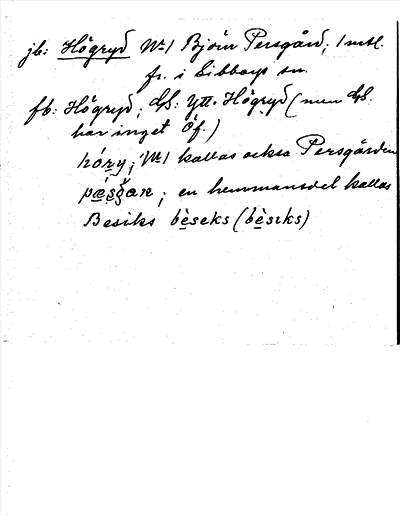 jb: Högryd No 1 Björn Persgård; 1 mtl.
fr. i Libbarps sn.
fb: Högryd; ds: Ytt. Högryd (men ds.
har inget Öf.)
hó̱ry; No 1 kallas också Persgården
pǽs̱gan; en hemmansdel kallas
Besiks bèseks (bèsıks)